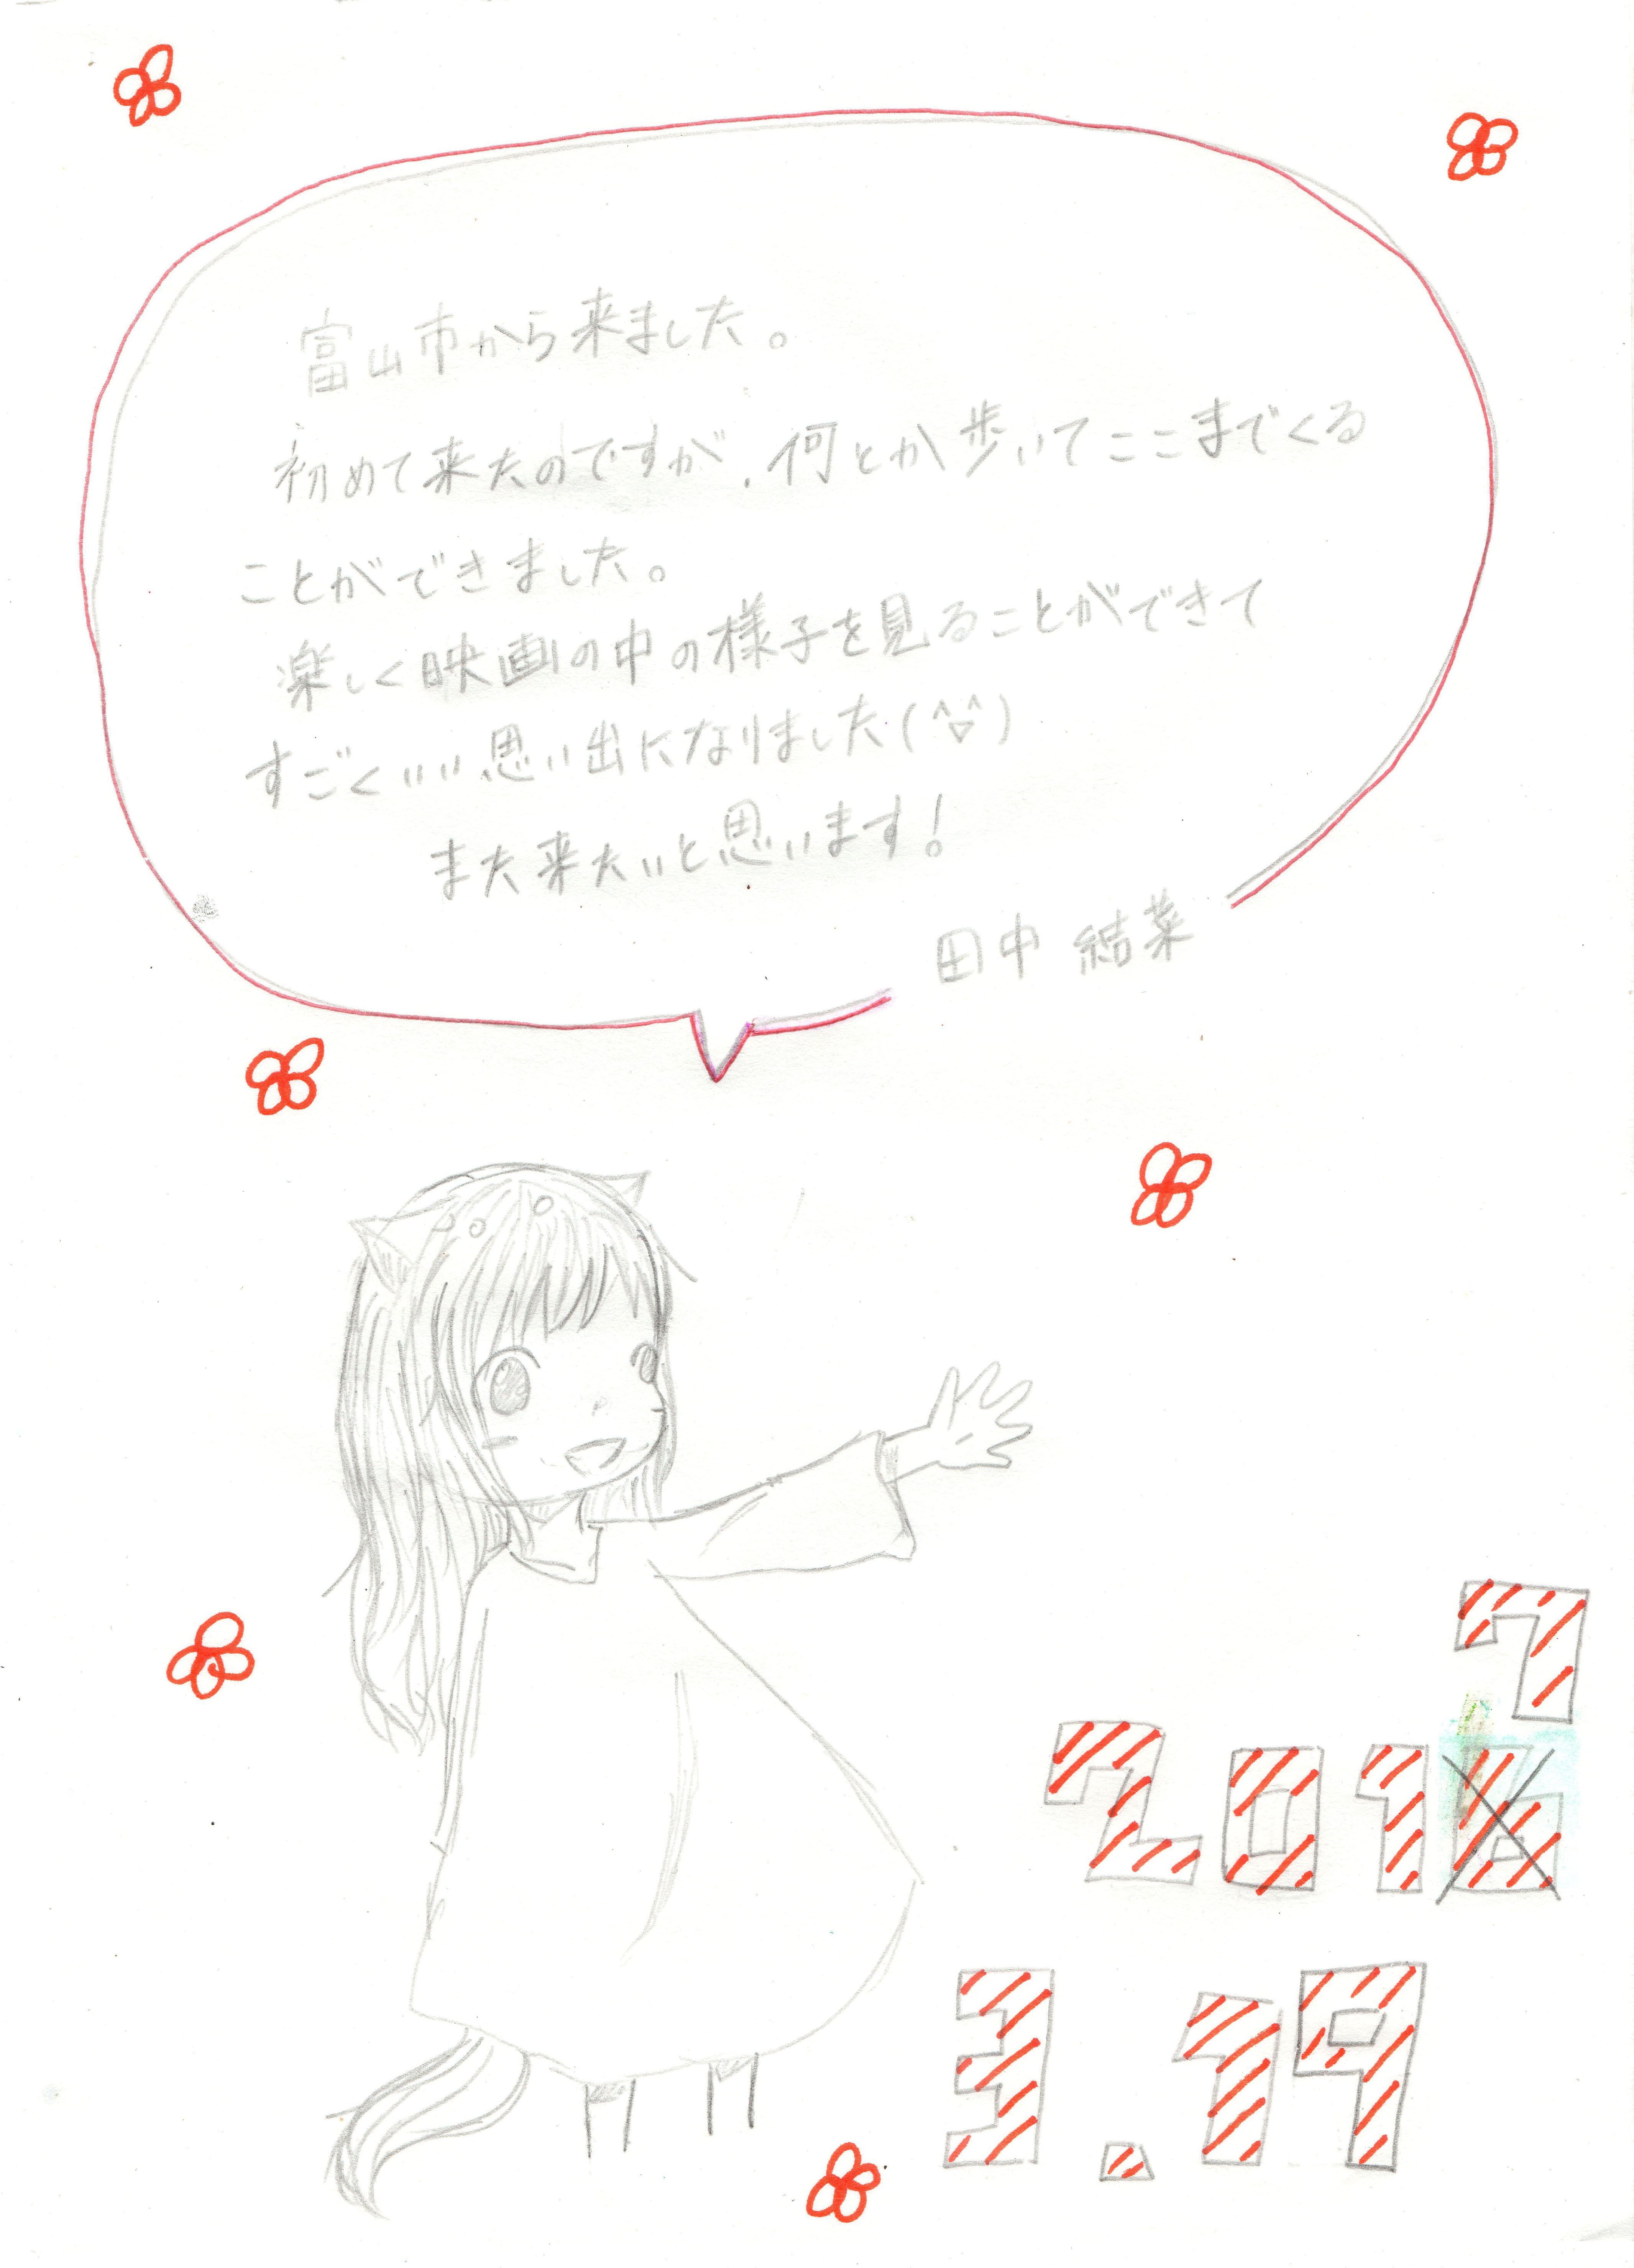 富山市から来ました。
初めて来たのですが、何とか歩いてここまでくる
ことができました。
楽しく映画の中の様子を見ることができて
すごくいい思い出になりました(^▽^)
また来たいと思います!
田中 結菜
7
2016
3.19